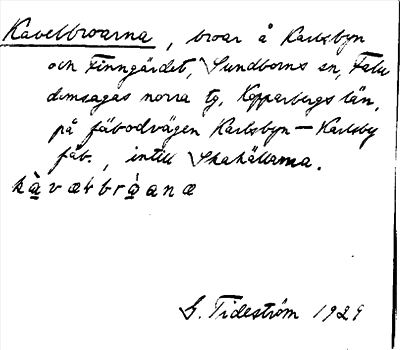 Kavelbroarna, broar å Karlsbyn
och Finngärdet, Sundborns sn, Falu
domsagas norra tg, Kopparbergs län,
på fäbodvägen Karlsbyn — Karlsby
fäb., intill Skakällarna.
kàvælbròanæ
G. Tideström 1929